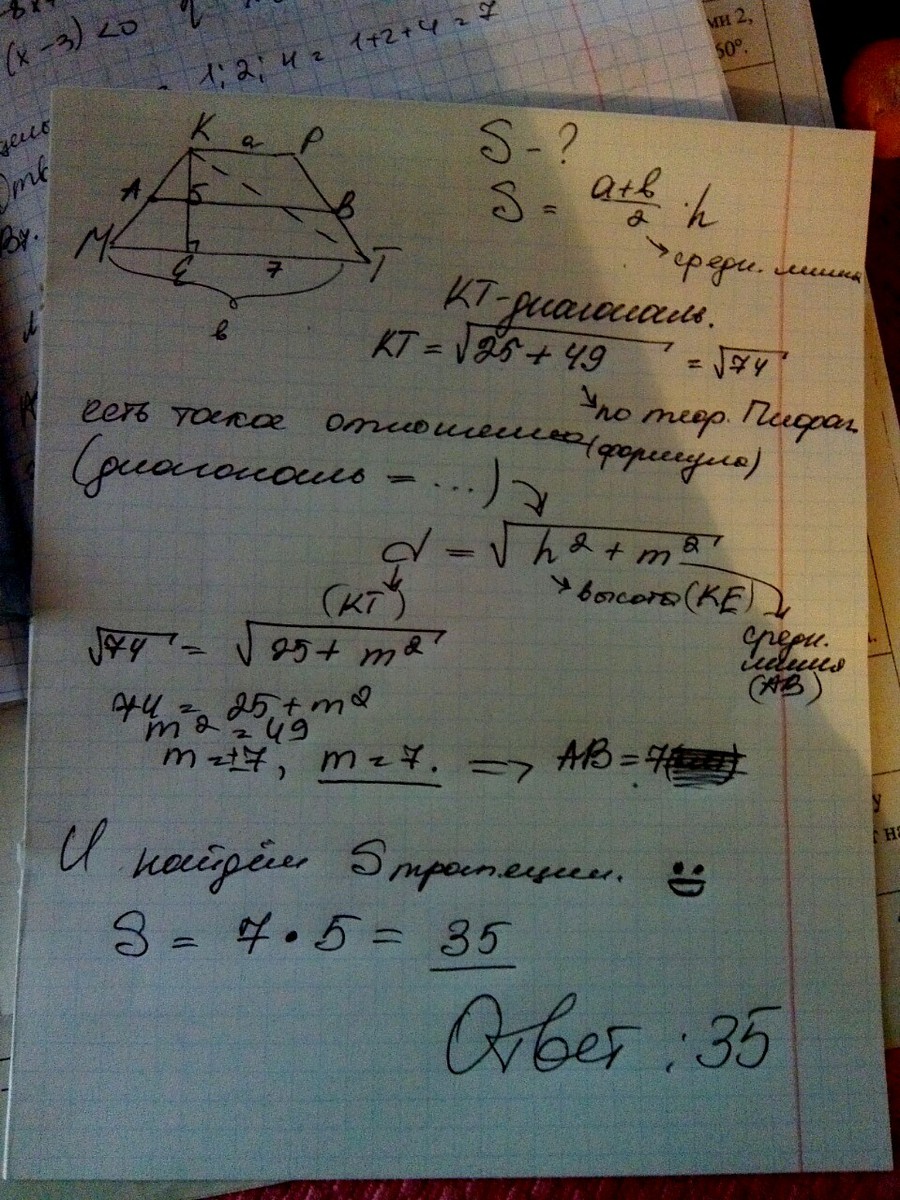 (x-3) <0
1; 2; 4 = 1+2+4 = 7
ми 2,
50°.
K a P
A 5 B
M E 7 T
в
S - ?
S = a+в/2 · h
средн. линия
KT-диагональ.
KT = √25 + 49 = √74
по теор. Пифаг
есть такое отношение (формула)
(диагональ = ...)
d = √h² + m²
(KT)
высота (KE)
средн.
линия
(AB)
√74 = √25 + m²
74 = 25 + m²
m² = 49
m = ±7, m = 7. => AB = 7
И найдём Sтрапеции.
S = 7 • 5 = 35
Ответ : 35